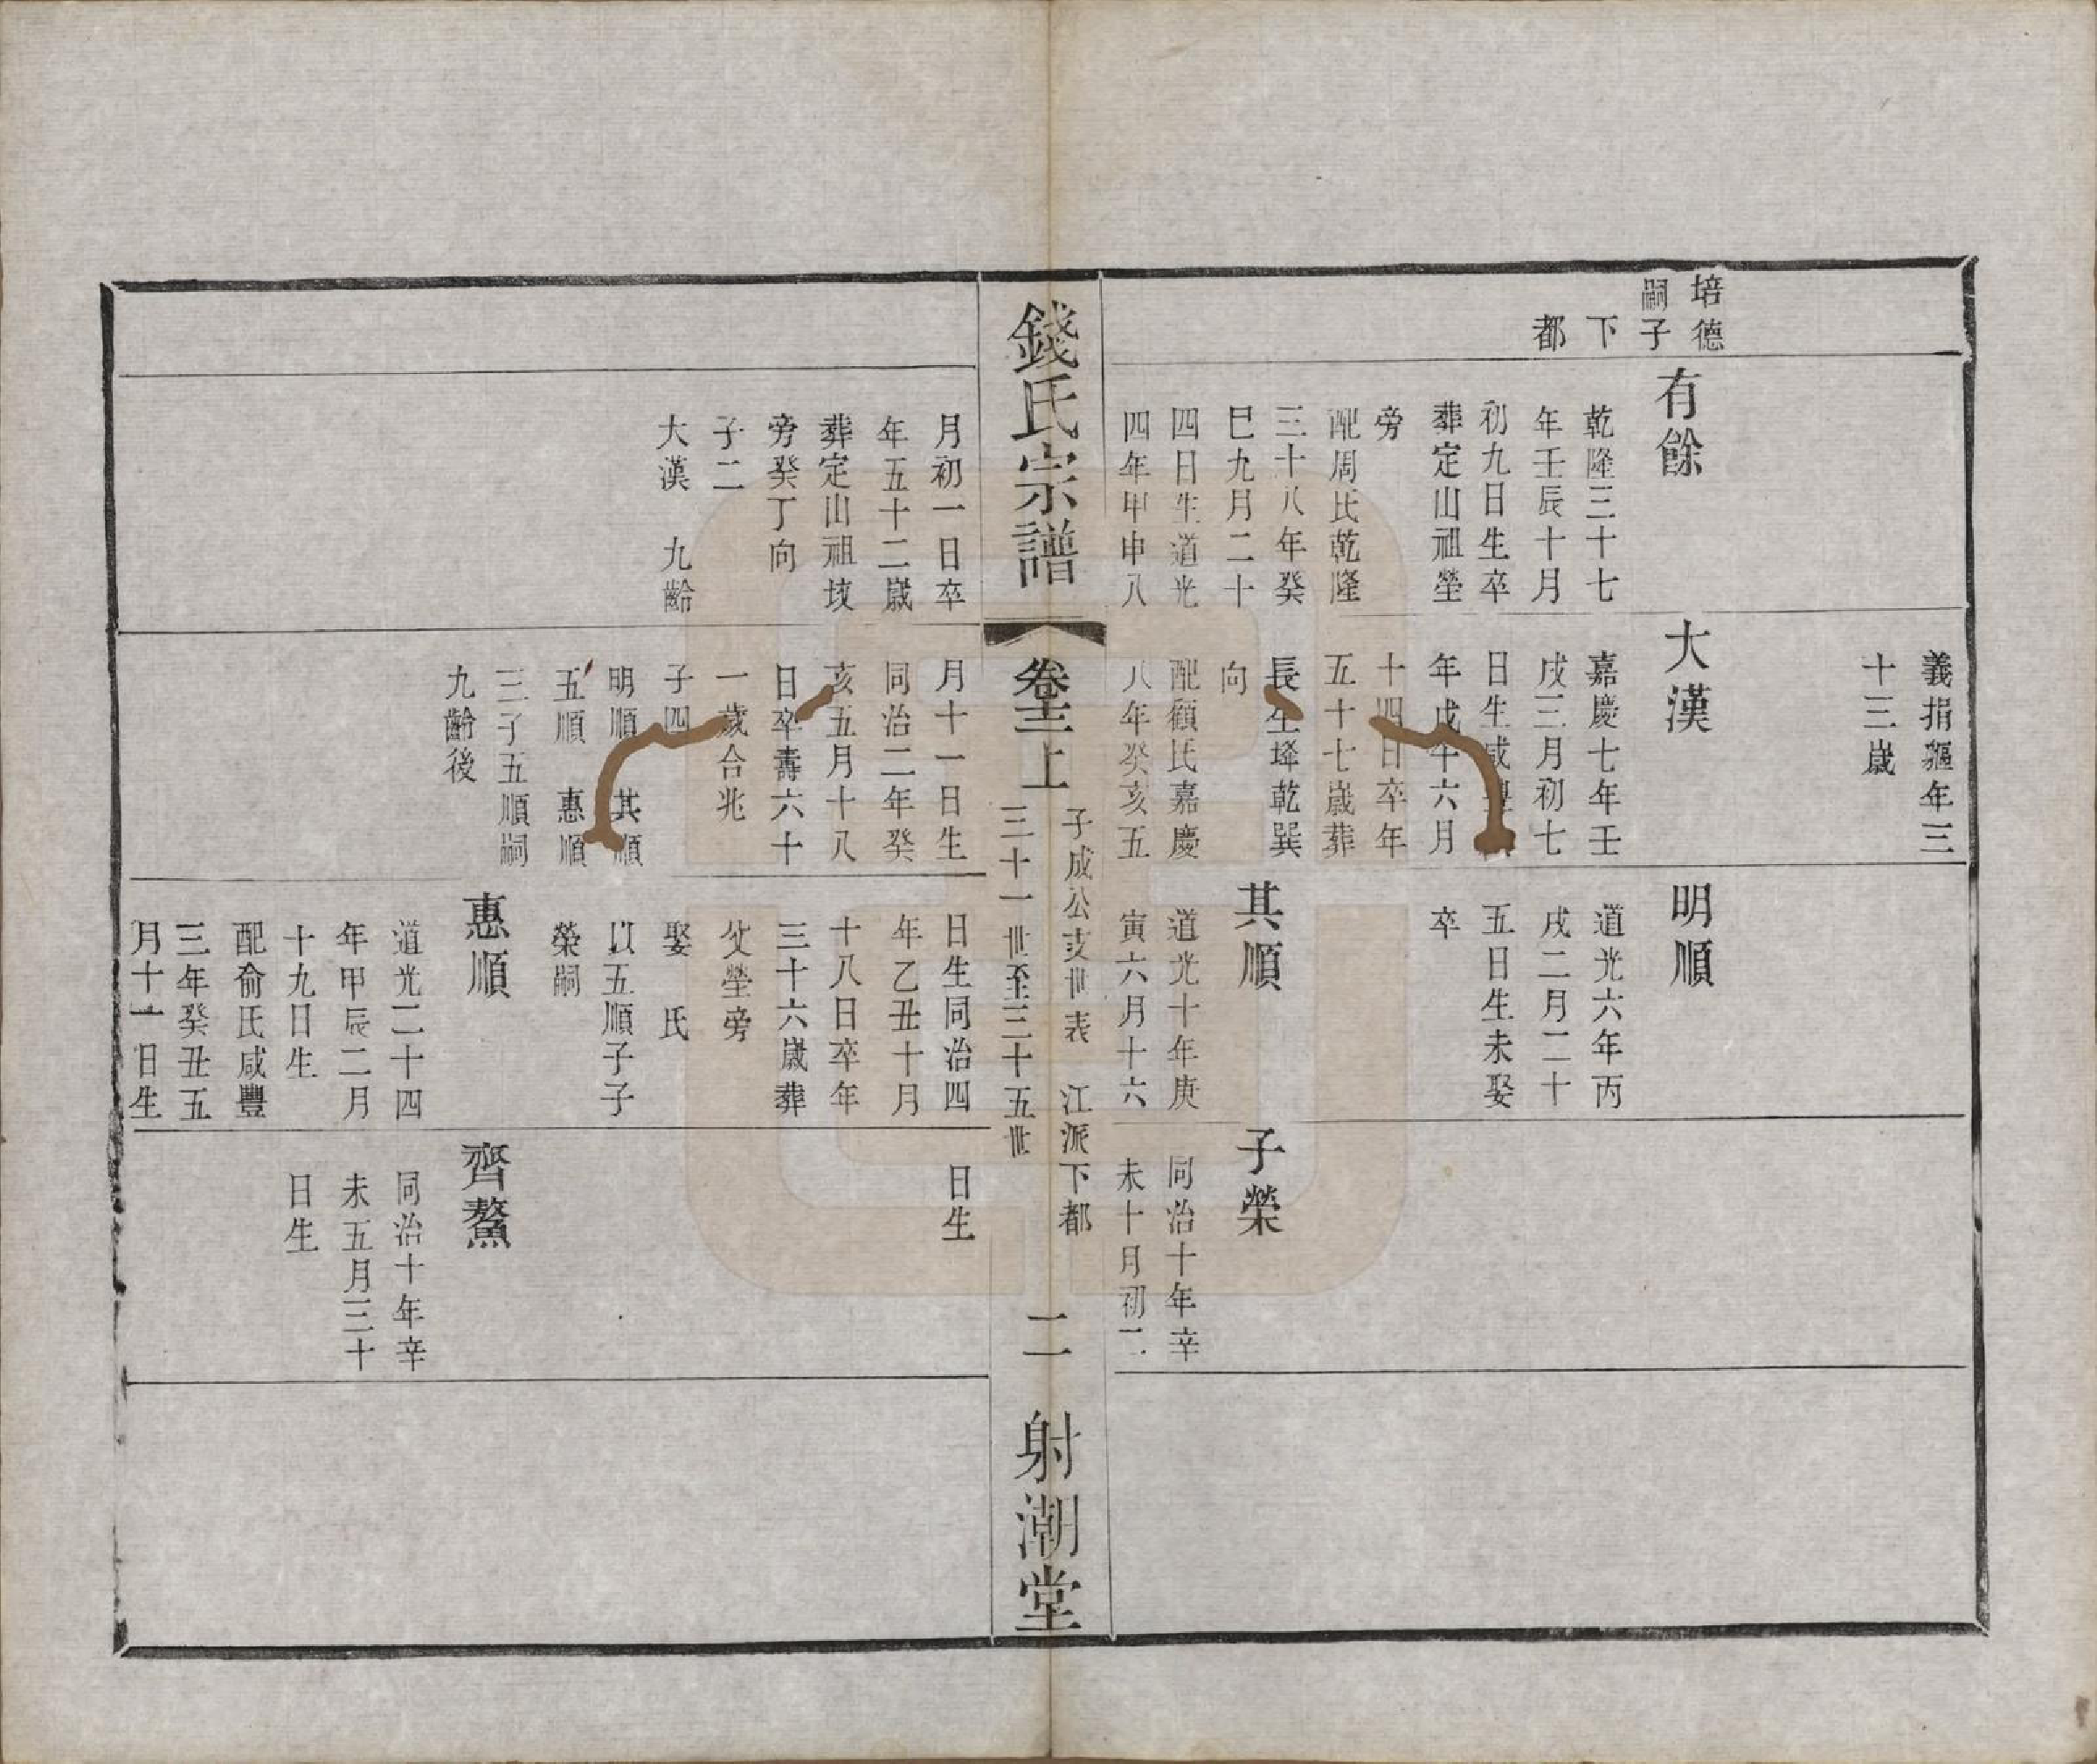 培德
嗣子
下
都
有餘
乾隆三十七
年壬辰十月
初九日生卒
葬定山祖塋
旁
配周氏乾隆
三十八年癸
巳九月二十
四日生道光
四年甲申八
義捐軀年三
十三歲
大漢
嘉慶七年壬
戌三月初七
日生咸豐
年戊午六月
十四日卒年
五十七歲葬
長生垾乾巽
向
配顧氏嘉慶
八年癸亥五
明順
道光六年丙
戌二月二十
五日生未娶
卒
其順
道光十年庚
寅六月十六
子榮
同治十年辛
未十月初二
錢氏宗譜
卷三上
子成公支世表 江派下都
三十一世至三十五世
二
射潮堂
月初一日卒
年五十二歲
葬定山祖坟
旁癸丁向
子二
大漢 九齡
月十一日生
同治二年癸
亥五月十八
日卒壽六十
一歲合兆
子四
明順 其順
五順 惠順
三子五順嗣
九齡後
日生同治四
年乙丑十月
十八日卒年
三十六歲葬
父塋旁
娶 氏
以五順子子
榮嗣
惠順
道光二十四
年甲辰二月
十九日生
配俞氏咸豐
三年癸丑五
月十一日生
日生
齊鰲
同治十年辛
未五月三十
日生